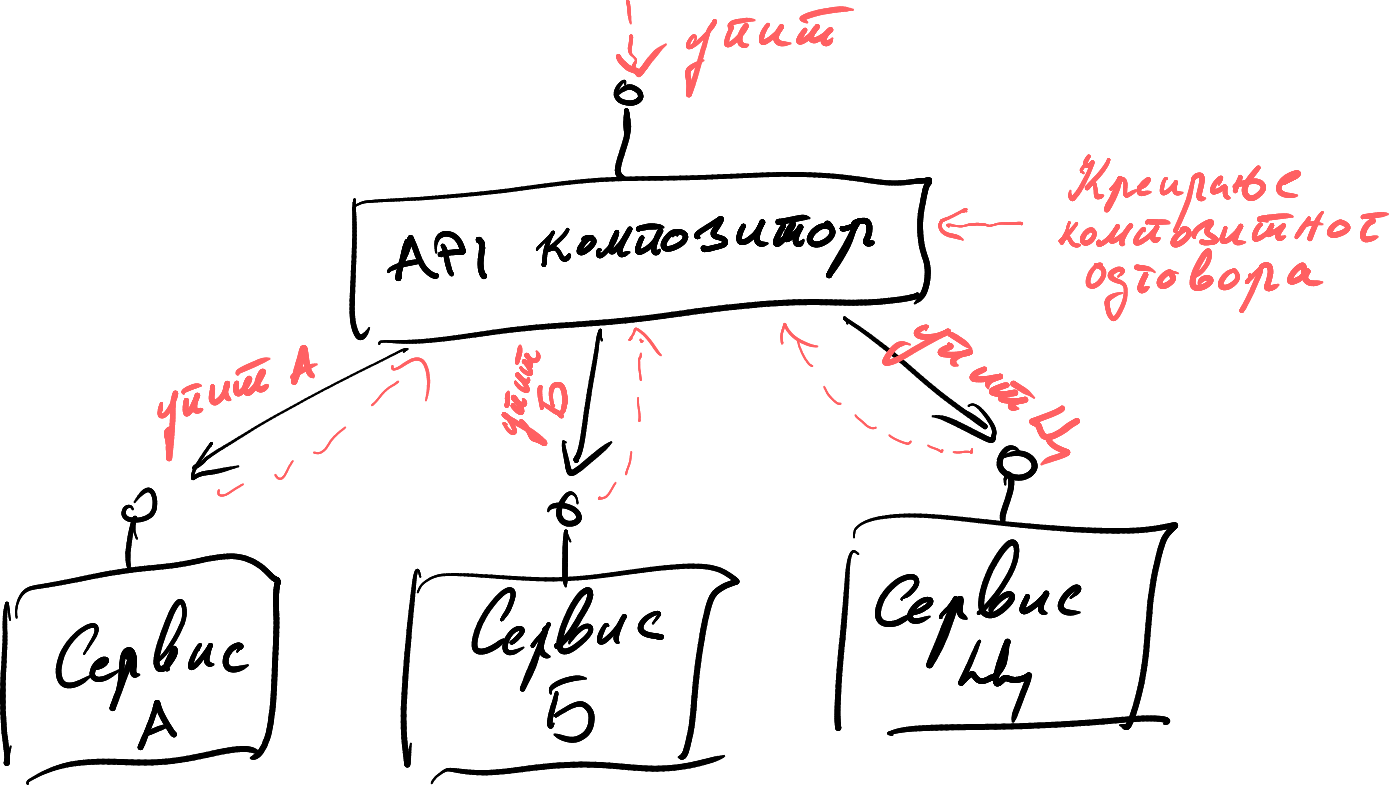 упит
API композитор
Креирање
композитног
одговора
упит А
упит
Б
упит Ц
Сервис
А
Сервис
Б
Сервис
Ц